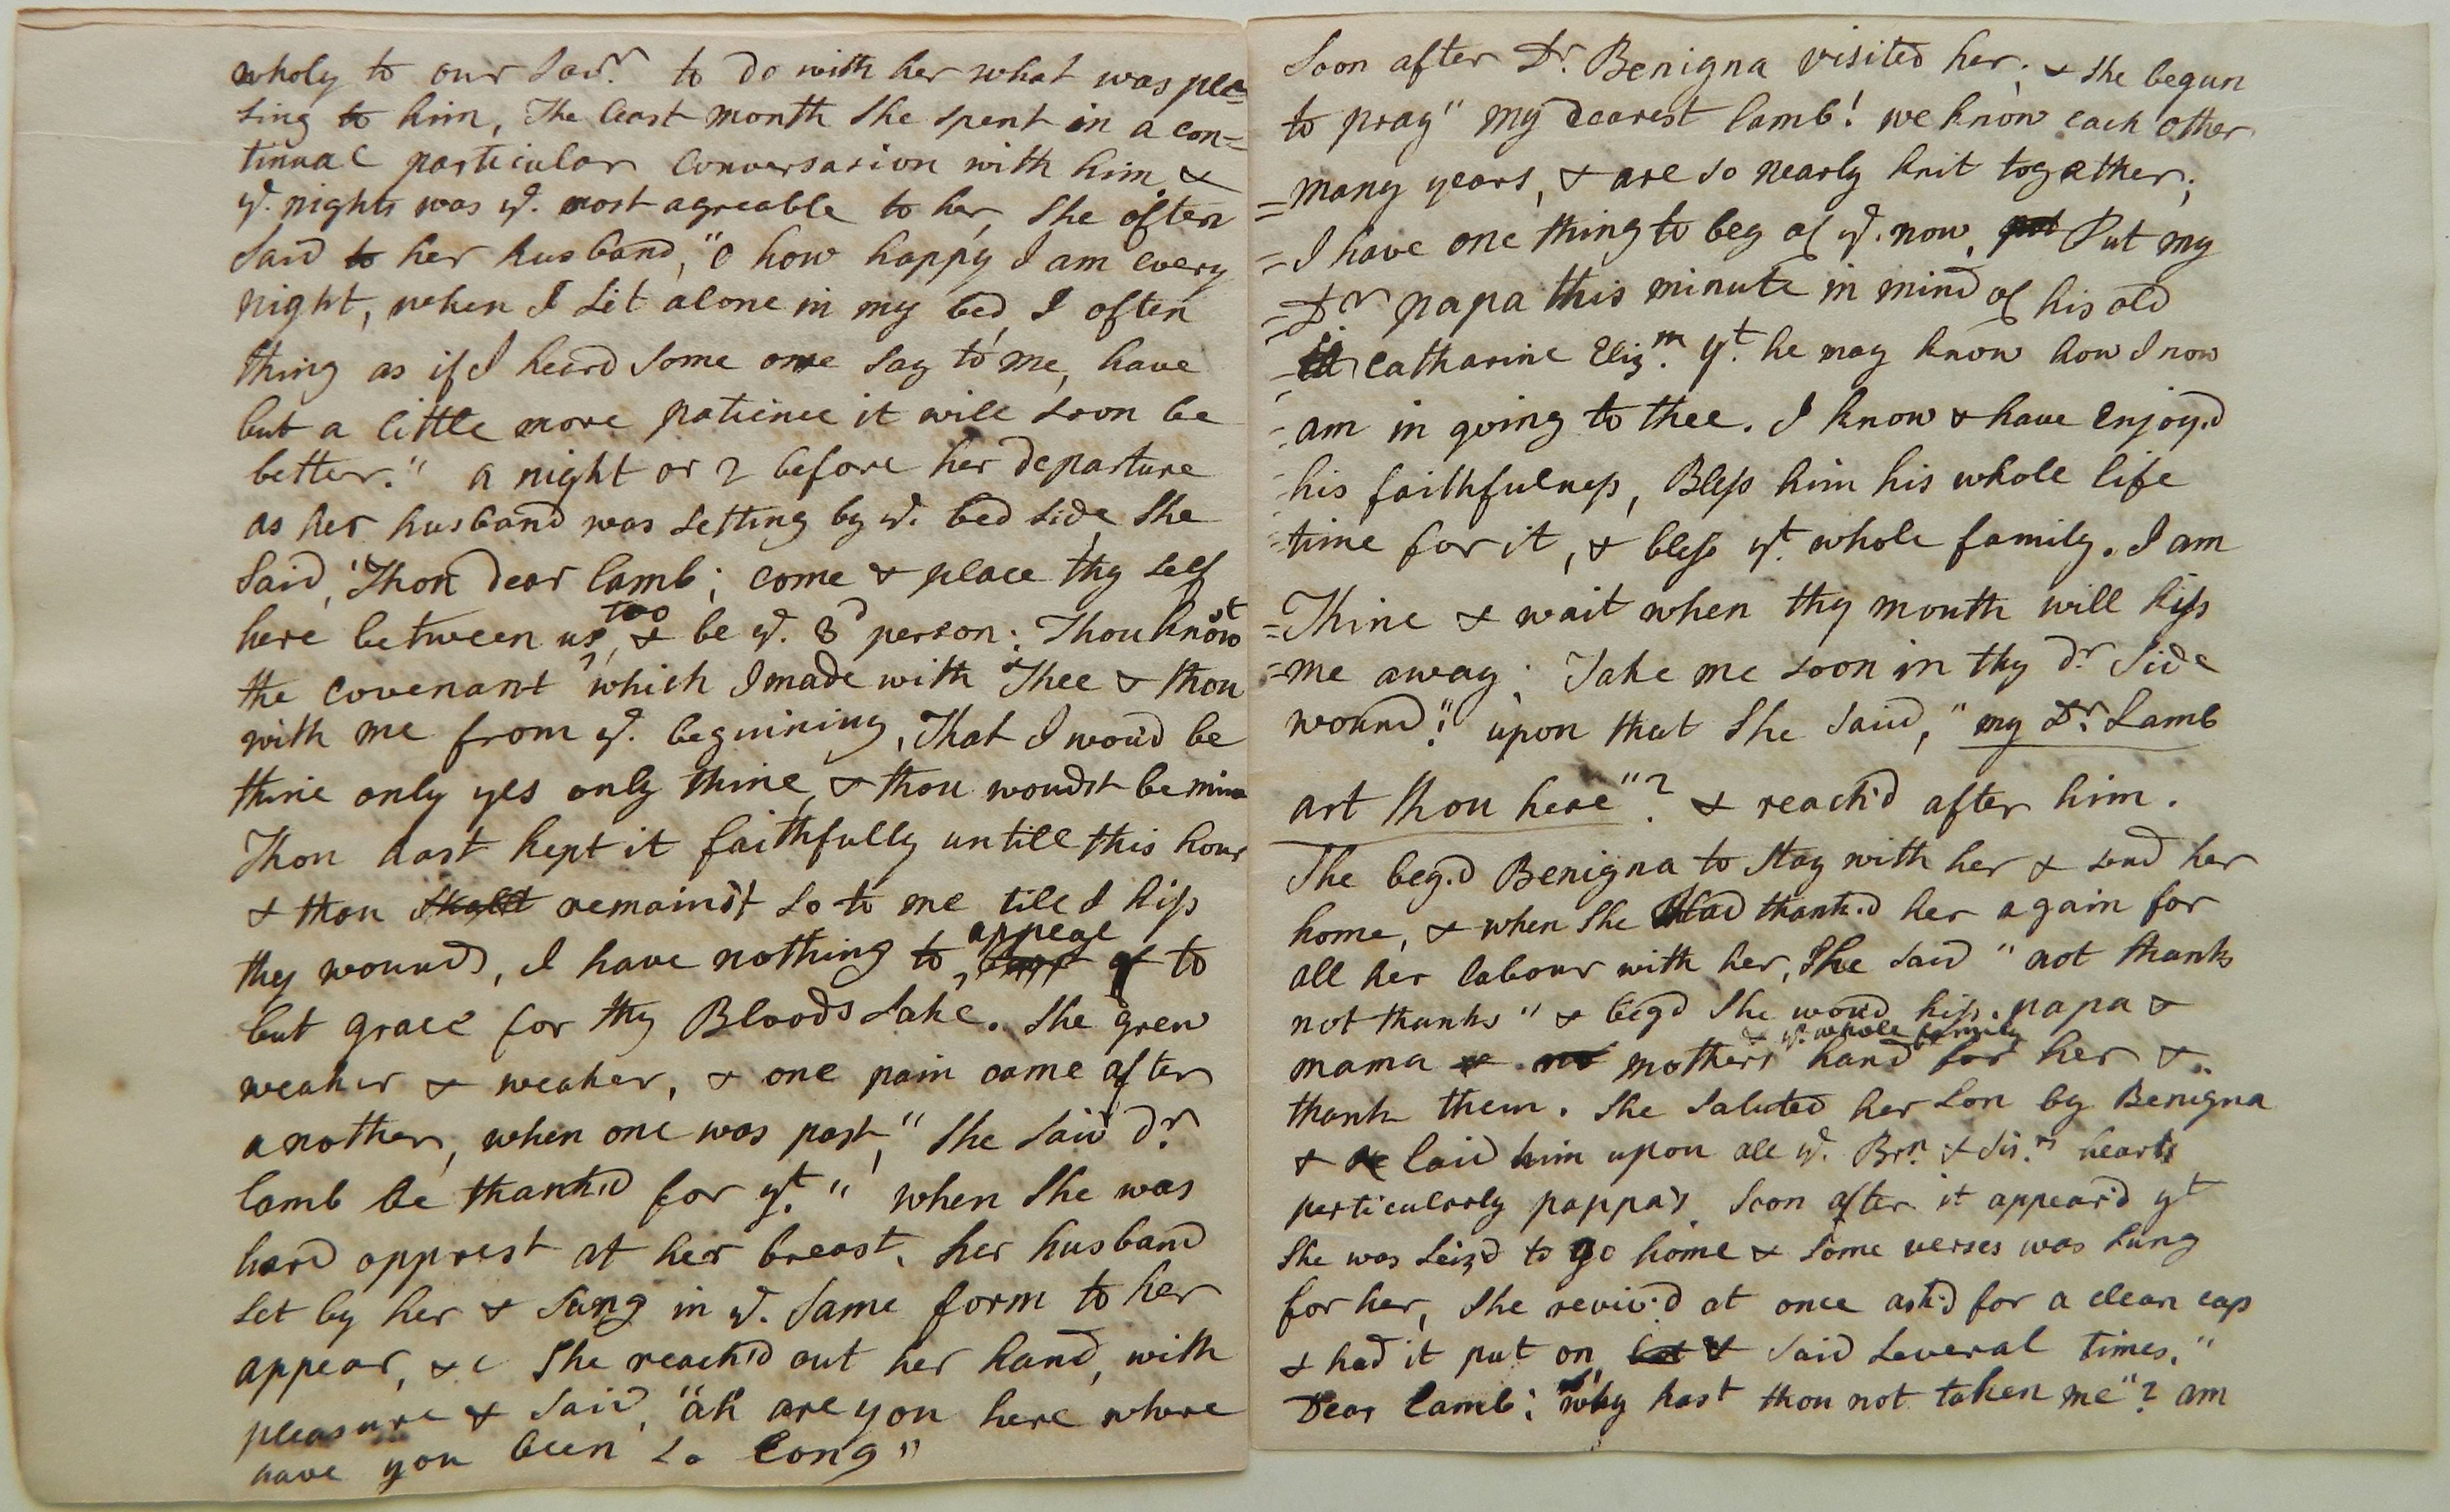 wholy to our Savr. to do with her what was plea=
sing to him, The least month She Spent in a con=
tinual particular Conversasion with him &
ye. nights was ye. most agreable to her, She often
Said to her husband, "O how happy I am every
night, when I Sit alone in my bed, I often
thing as if I heard Some one Say to me, have
but a little more patience it will Soon be
better." a night or 2 before her departure
as her husband was Setting by ye. bed Side, She
Said, "Thou dear lamb; come & place thy Self
here between us, too & be ye. 3d person: Thou knowst
the Covenant which I made with Thee & thou
with me from ye. beginning, That I wou'd be
thine only yes only thine, & thou woudst be mine
Thou hast kept it faithfully untill this hour
& thou Shallt remainst So to me till I kiss
thy wounds, I have nothing to appeal to
but grace for thy Bloods Sake. She grew
weaker & weaker, & one pain came after
another, when one was past, "She Said dr.
lamb be thank'd for yt." when She was
hard opprest at her breast, her husband
Set by her & Sung in ye. Same form to her
appear, &c She reach'd out her hand, with
pleasure & Said, "ah are you here where
have you been So long"
Soon after Dr. Benigna visited her, & She begun
to pray" my dearest lamb! we know each other
=many years, & are So nearly knit togather;
=I have one thing to beg of ye. now, put Put my
=Dr papa this minute in mind of his old
=Catharine Elizm. yt. he may know how I now
=am in going to thee. I know & have Enjoy'd
=his faithfulness, Bless him his whole life
=time for it, & bless yt. whole family. I am
=Thine & wait when thy mouth will kiss
=me away; Take me soon in thy dr. Side
wound!" upon that She Said, "my Dr. Lamb
art thou here"? & reach'd after him.
She beg'd Benigna to Stay with her & send her
home, & when She had thank'd her again for
all her labour with her, She Said "not thanks
not thanks" & beg'd She woud kiss papa &
mama mothers & ye. whole family hand for her &
thank them. She Saluted her Son by Benigna
& laid him upon all ye. Brn. & Sis.rs hearts
perticularly pappa's. Soon after it appear'd yt
She was Seiz'd to go home & Some verses was Sung
for her, She reviv'd at once ask'd for a clean cap
& had it put on, & Said Several times, "
Dear Lamb! why hast thou not taken me"? am